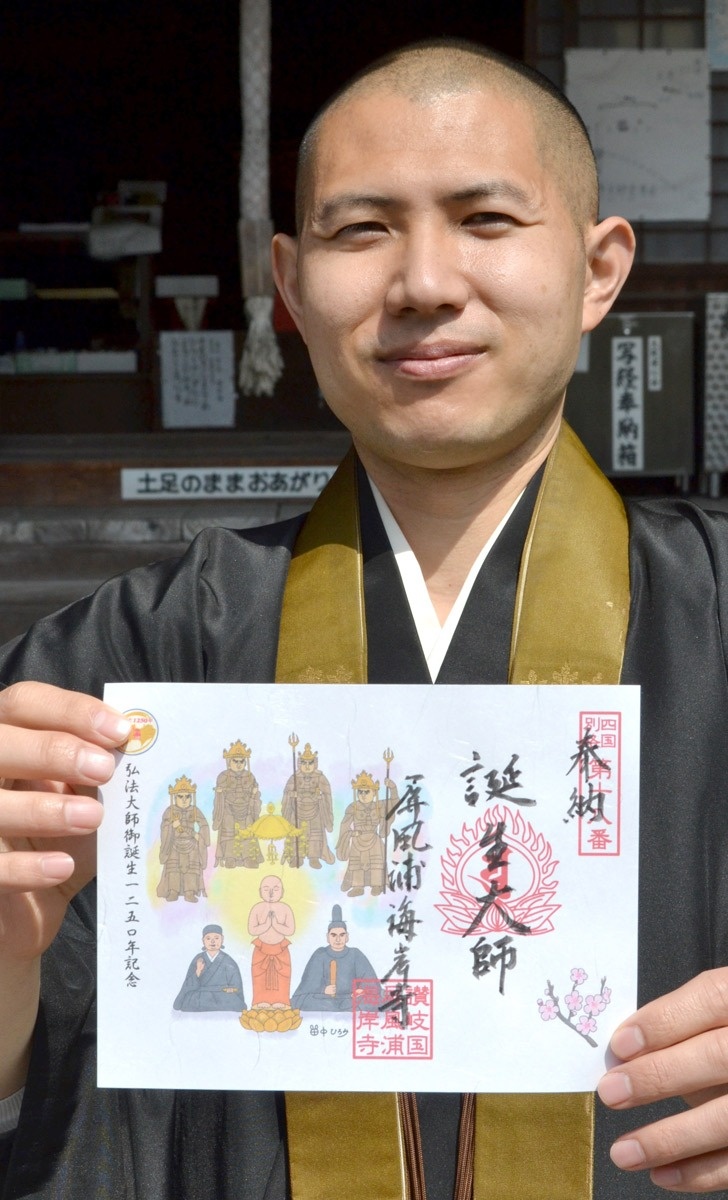 写経奉納箱
土足のままおあがり
四国
別格
第十八番
奉納
誕生大師
屏風浦海岸寺
讃岐国
屏風浦
海岸寺
弘法大師御誕生一二五〇年記念
田中ひろみ